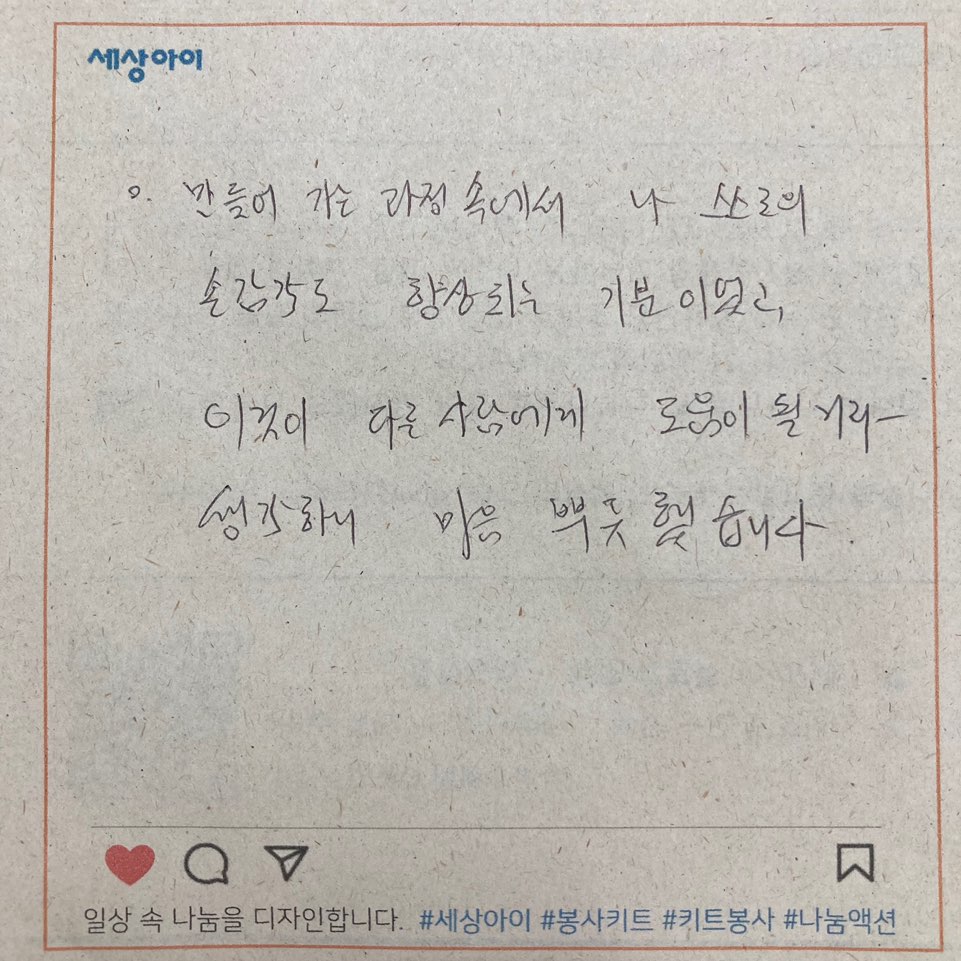 세상아이
o. 만들어 가는 과정 속에서 나 쓰스로의
손감각도 향상되는 기분이었고,
이것이 다른 사람에게 도움이 될거라
생각하니 마음 뿌듯했습니다.
일상 속 나눔을 디자인합니다. #세상아이 #봉사키트 #키트봉사 #나눔액션